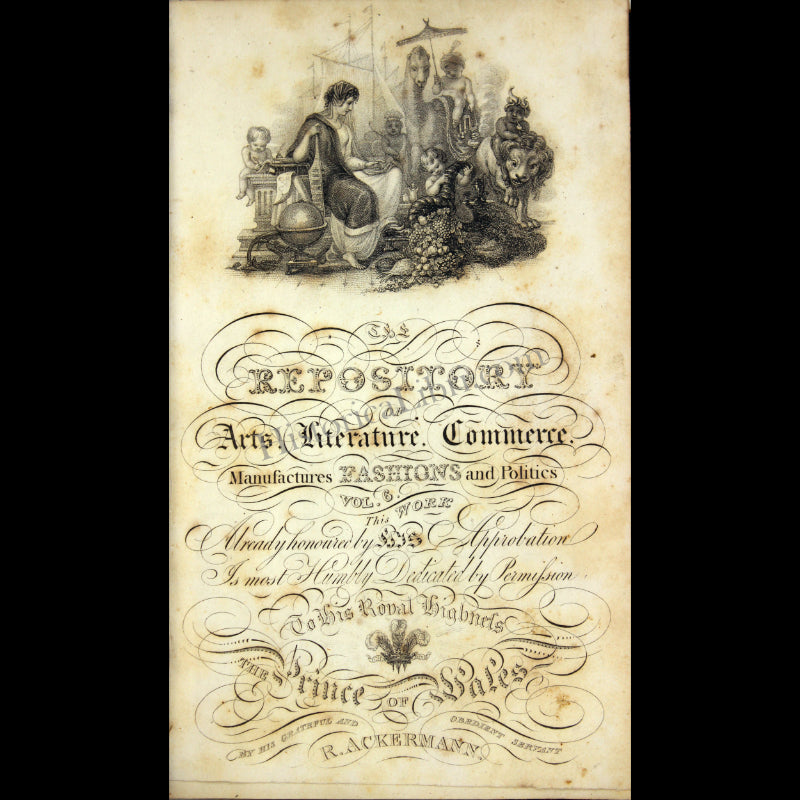 The
REPOSITORY
OF
Arts, Literature, Commerce,
Manufactures FASHIONS and Politics
VOL. 6.
This WORK
Already honoured by HIS Approbation
Is most Humbly Dedicated by Permiſsion
To His Royal Highneſs
THE Prince OF Wales
BY HIS GRATEFUL AND OBEDIENT SERVANT
R. ACKERMANN.